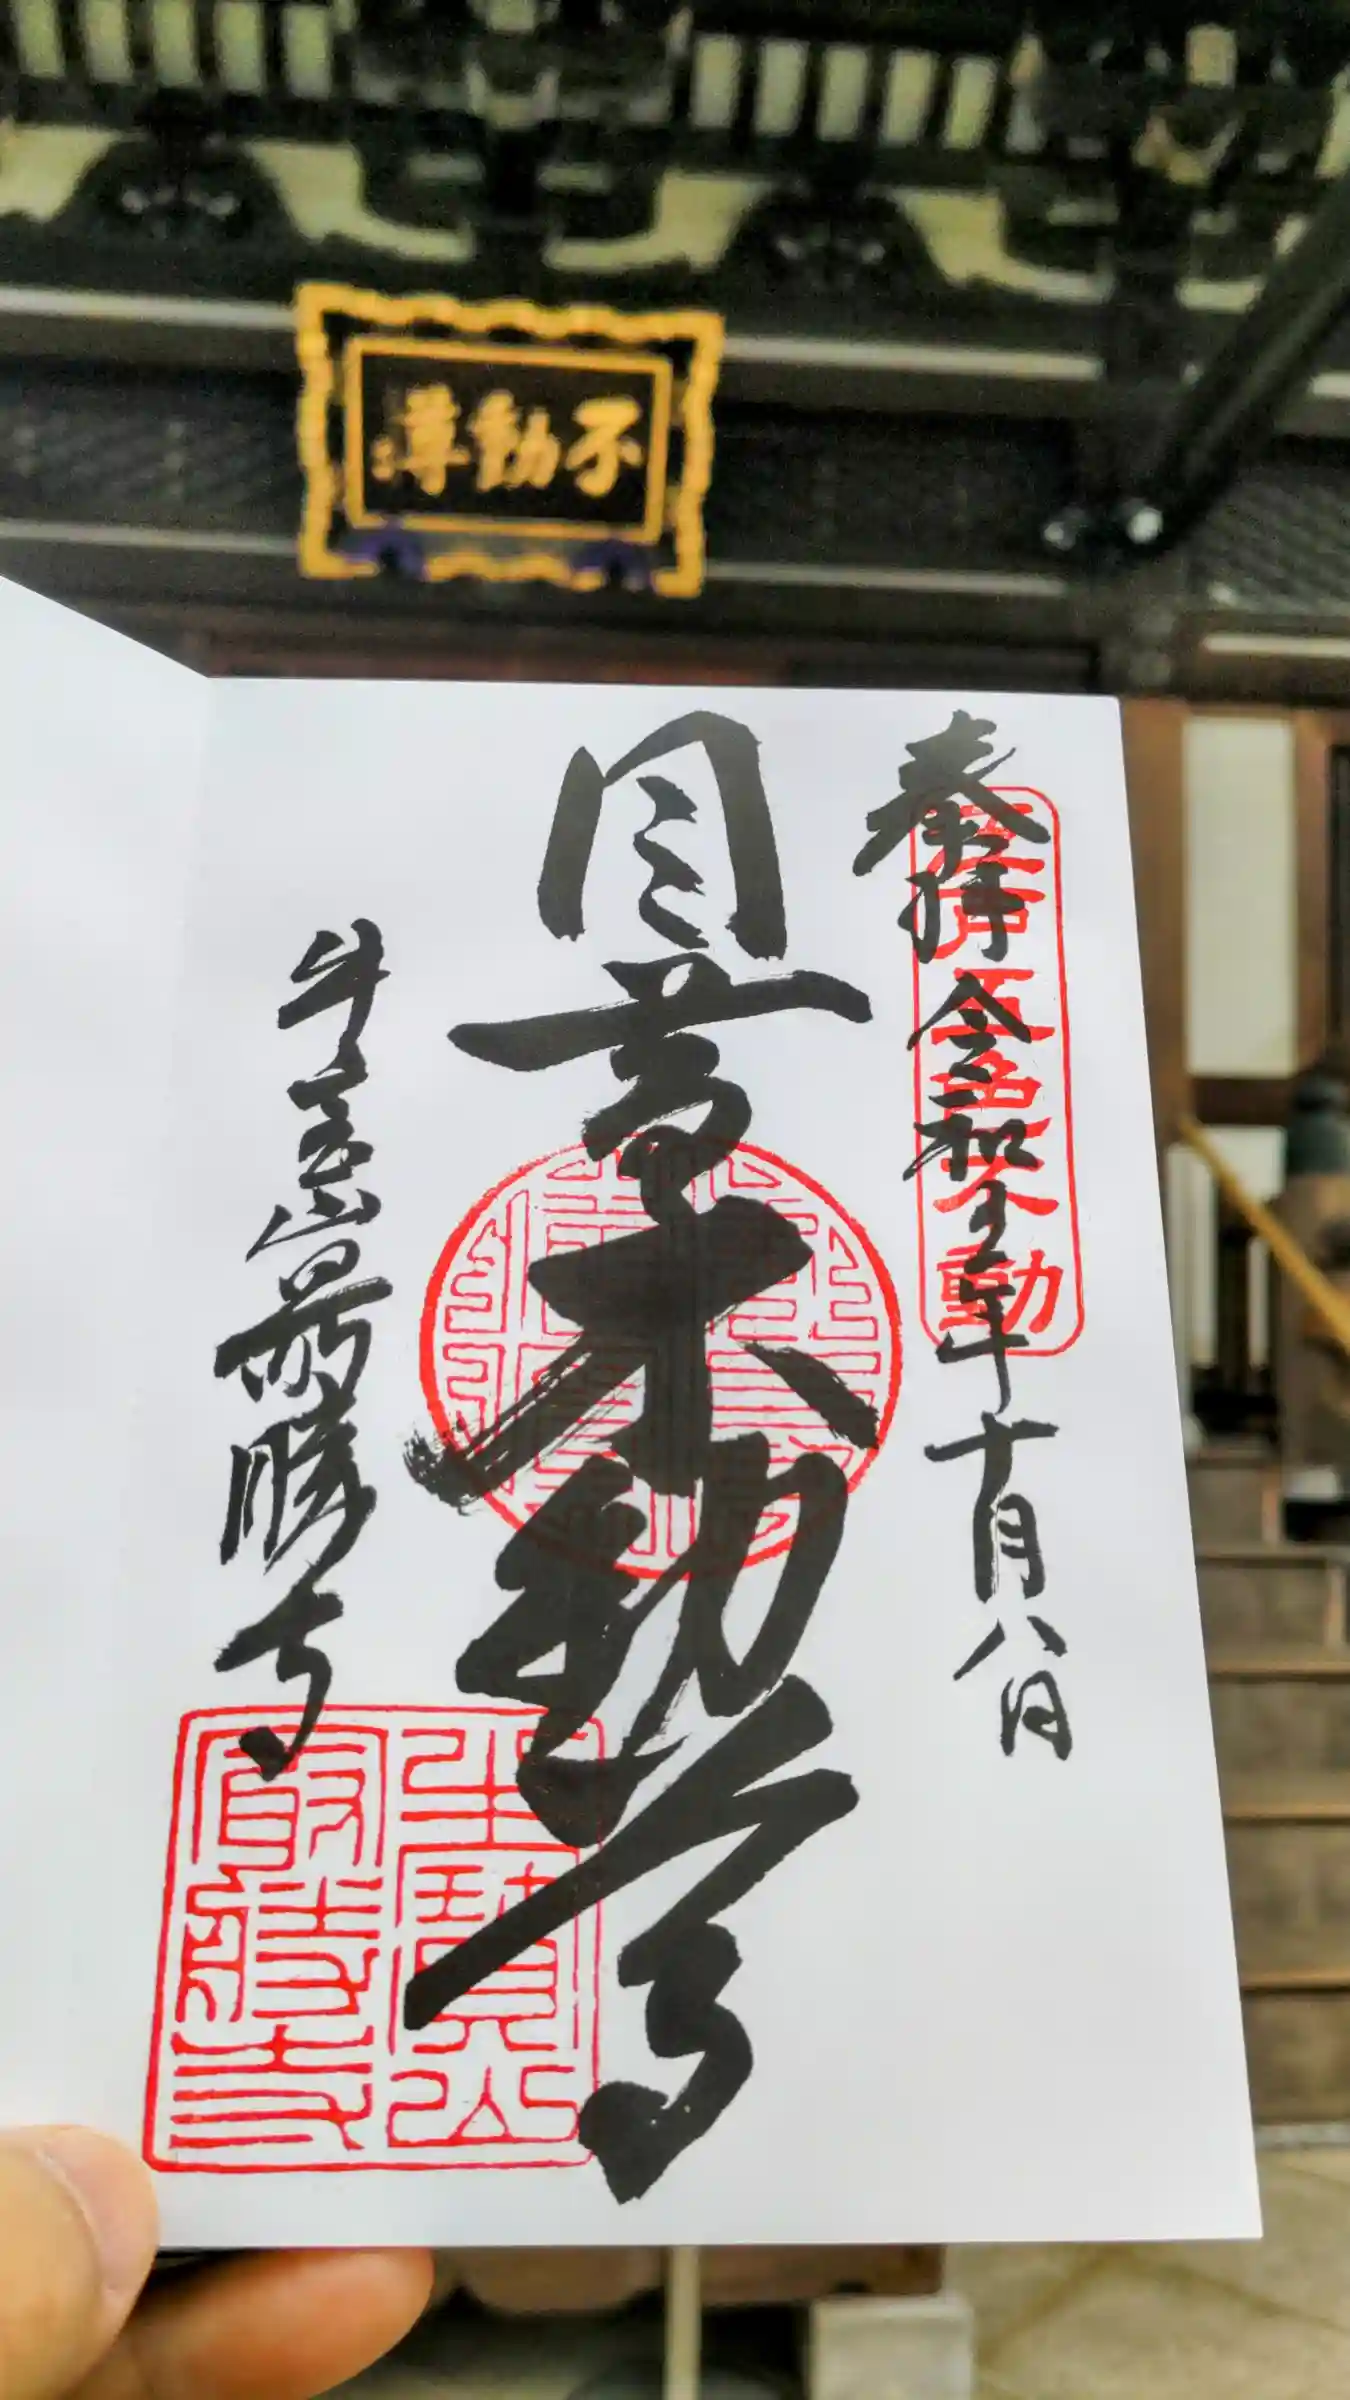 不動尊
奉拝 令和五年十月八日
江戸五色不動
目黄不動尊
牛宝山最勝寺
牛寶山
最勝寺